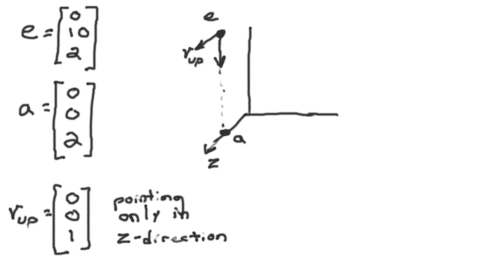 e = [0 10 2]
e
r_up
a = [0 0 2]
a
z
r_up = [0 0 1]
pointing
only in
z-direction